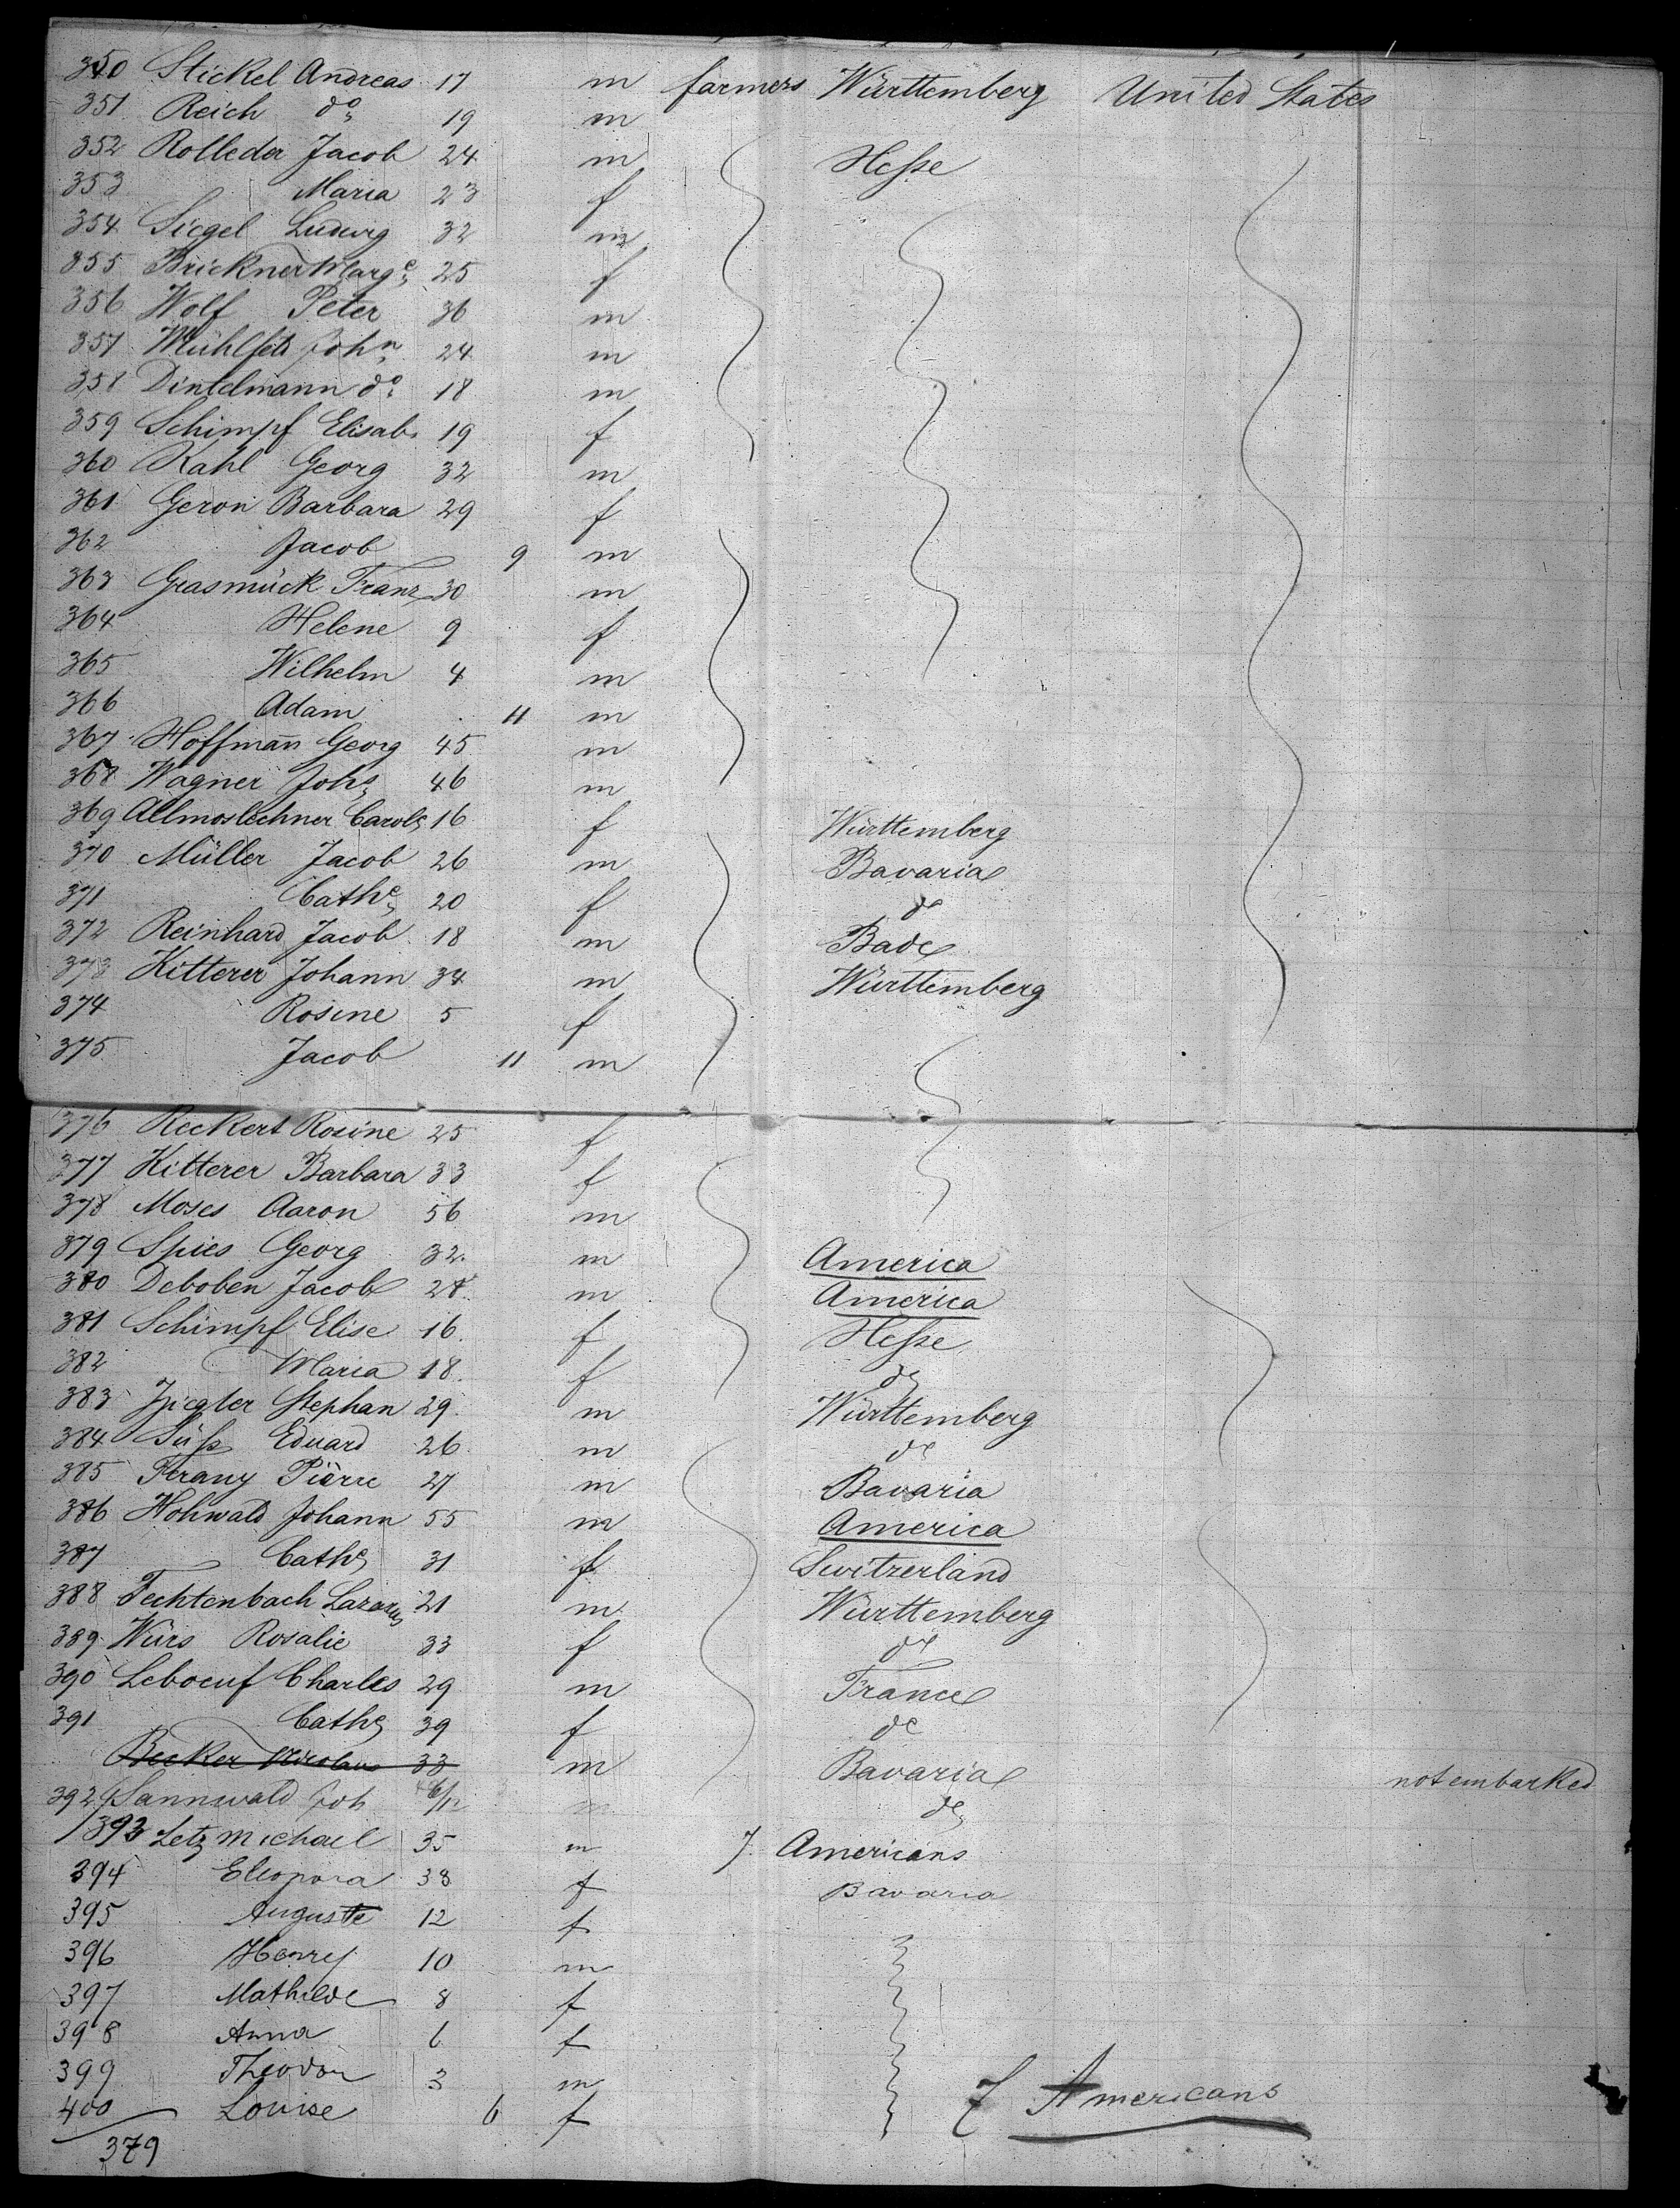 350 Stickel Andreas 17 m farmers Württemberg United States
351 Reich do 19 m
352 Rolleder Jacob 24 m Hesse
353 Maria 23 f
354 Siegel Ludwig 32 m
355 Brickner Marge 25 f
356 Wolf Peter 36 m
357 Mühlfeld John 24 m
358 Dintelmann do 18 m
359 Schimpf Elisab. 19 f
360 Kahl Georg 32 m
361 Geron Barbara 29 f
362 Jacob 9 m
363 Grasmück Franz 30 m
364 Helene 9 f
365 Wilhelm 4 m
366 Adam 11 m
367 Hoffmann Georg 45 m
368 Wagner Johs 46 m
369 Allmoslechner Carole 16 f Württemberg
370 Müller Jacob 26 m Bavaria
371 Cathe 20 f do
372 Reinhard Jacob 18 m Bade
373 Kitterer Johann 34 m Württemberg
374 Rosine 5 f
375 Jacob 11 m
376 Reckert Rosine 25 f
377 Kitterer Barbara 33 f
378 Moses Aaron 56 m
379 Spies Georg 32 m America
380 Deboben Jacob 28 m America
381 Schimpf Elise 16 f Hesse
382 Maria 18 f do
383 Ziegler Stephan 29 m Württemberg
384 Süss Eduard 26 m do
385 Pierre 27 m Bavaria
386 Hohwald Johann 55 m America
387 Cathe 31 f Switzerland
388 Fechtenbach Lazarus 21 m Württemberg
389 Würs Rosalie 33 f do
390 Leboeuf Charles 29 m France
391 Cathe 39 f do
Becker Nicolaus 33 m Bavaria not embarked
392 Sannwald Joh m do
393 Letz Michael 35 m 7. Americans
394 Eleonora 38 f Bavaria
395 Auguste 12 f
396 Henry 10 m
397 Mathilde 8 f
398 Anna 6 f
399 Theodor 3 m
400 Louise 6 f 7 Americans
379